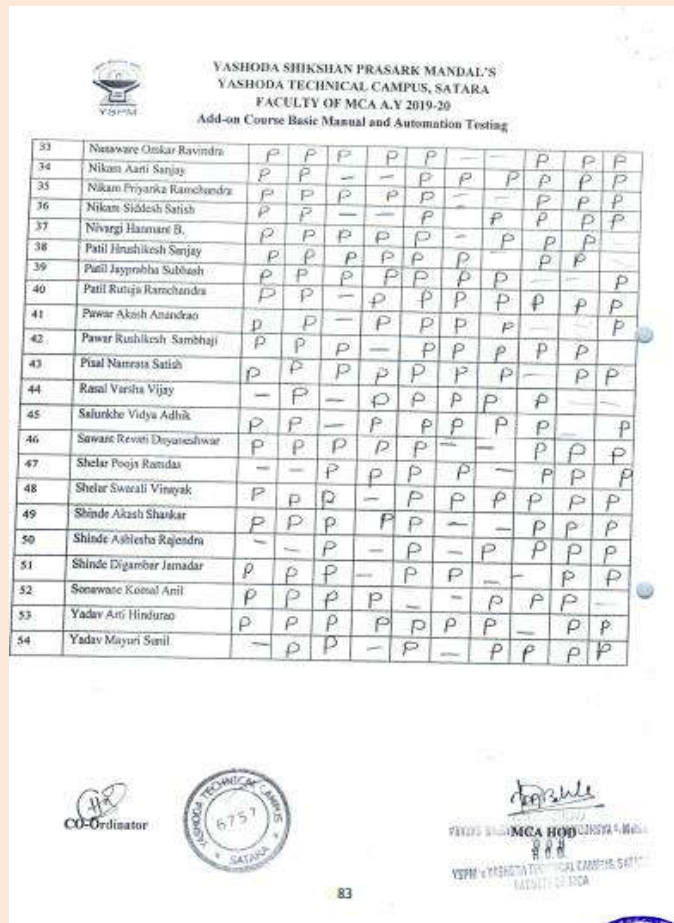 YASHODA SHIKSHAN PRASARK MANDAL'S
YASHODA TECHNICAL CAMPUS, SATARA
FACULTY OF MCA A.Y 2019-20
Add-on Course Basic Manual and Automation Testing
YSPM
33 Nanaware Omkar Ravindra P P P P P — — P P P
34 Nikam Aarti Sanjay P P — — P P P P P P
35 Nikam Priyanka Ramchandra P P P P P — — P P P
36 Nikam Siddesh Satish P P — — P P P P P
37 Nivargi Hanmant B. P P P P P — P P P —
38 Patil Hrushikesh Sanjay P P P P P P — P P —
39 Patil Jayprabha Subhash P P P P P P P — — P
40 Patil Rutuja Ramchandra P P — P P P P P P P
41 Pawar Akash Anandrao P P — P P P P — — P
42 Pawar Rushikesh Sambhaji P P P — P P P P P
43 Pisal Namrata Satish P P P P P P P — P P
44 Rasal Varsha Vijay — P — P P P P P — —
45 Salunkhe Vidya Adhik P P — P P P P P — P
46 Sawant Revati Dnyaneshwar P P P P P — — P P P
47 Shelar Pooja Ramdas — — P P P P — P P P
48 Shelar Swarali Vinayak P P P — P P P P P P
49 Shinde Akash Shankar P P P P P — — P P P
50 Shinde Ashlesha Rajendra — — P — P — P P P P
51 Shinde Digamber Jamadar P P P — P P — — P P
52 Sonawane Komal Anil P P P P — — P P P —
53 Yadav Arti Hindurao P P P P P P P — P P
54 Yadav Mayuri Sunil — P P — P — P P P P
CO-Ordinator
YASHODA TECHNICAL CAMPUS
6757
SATARA
MCA HOD
H.O.D.
FACULTY OF MCA
83